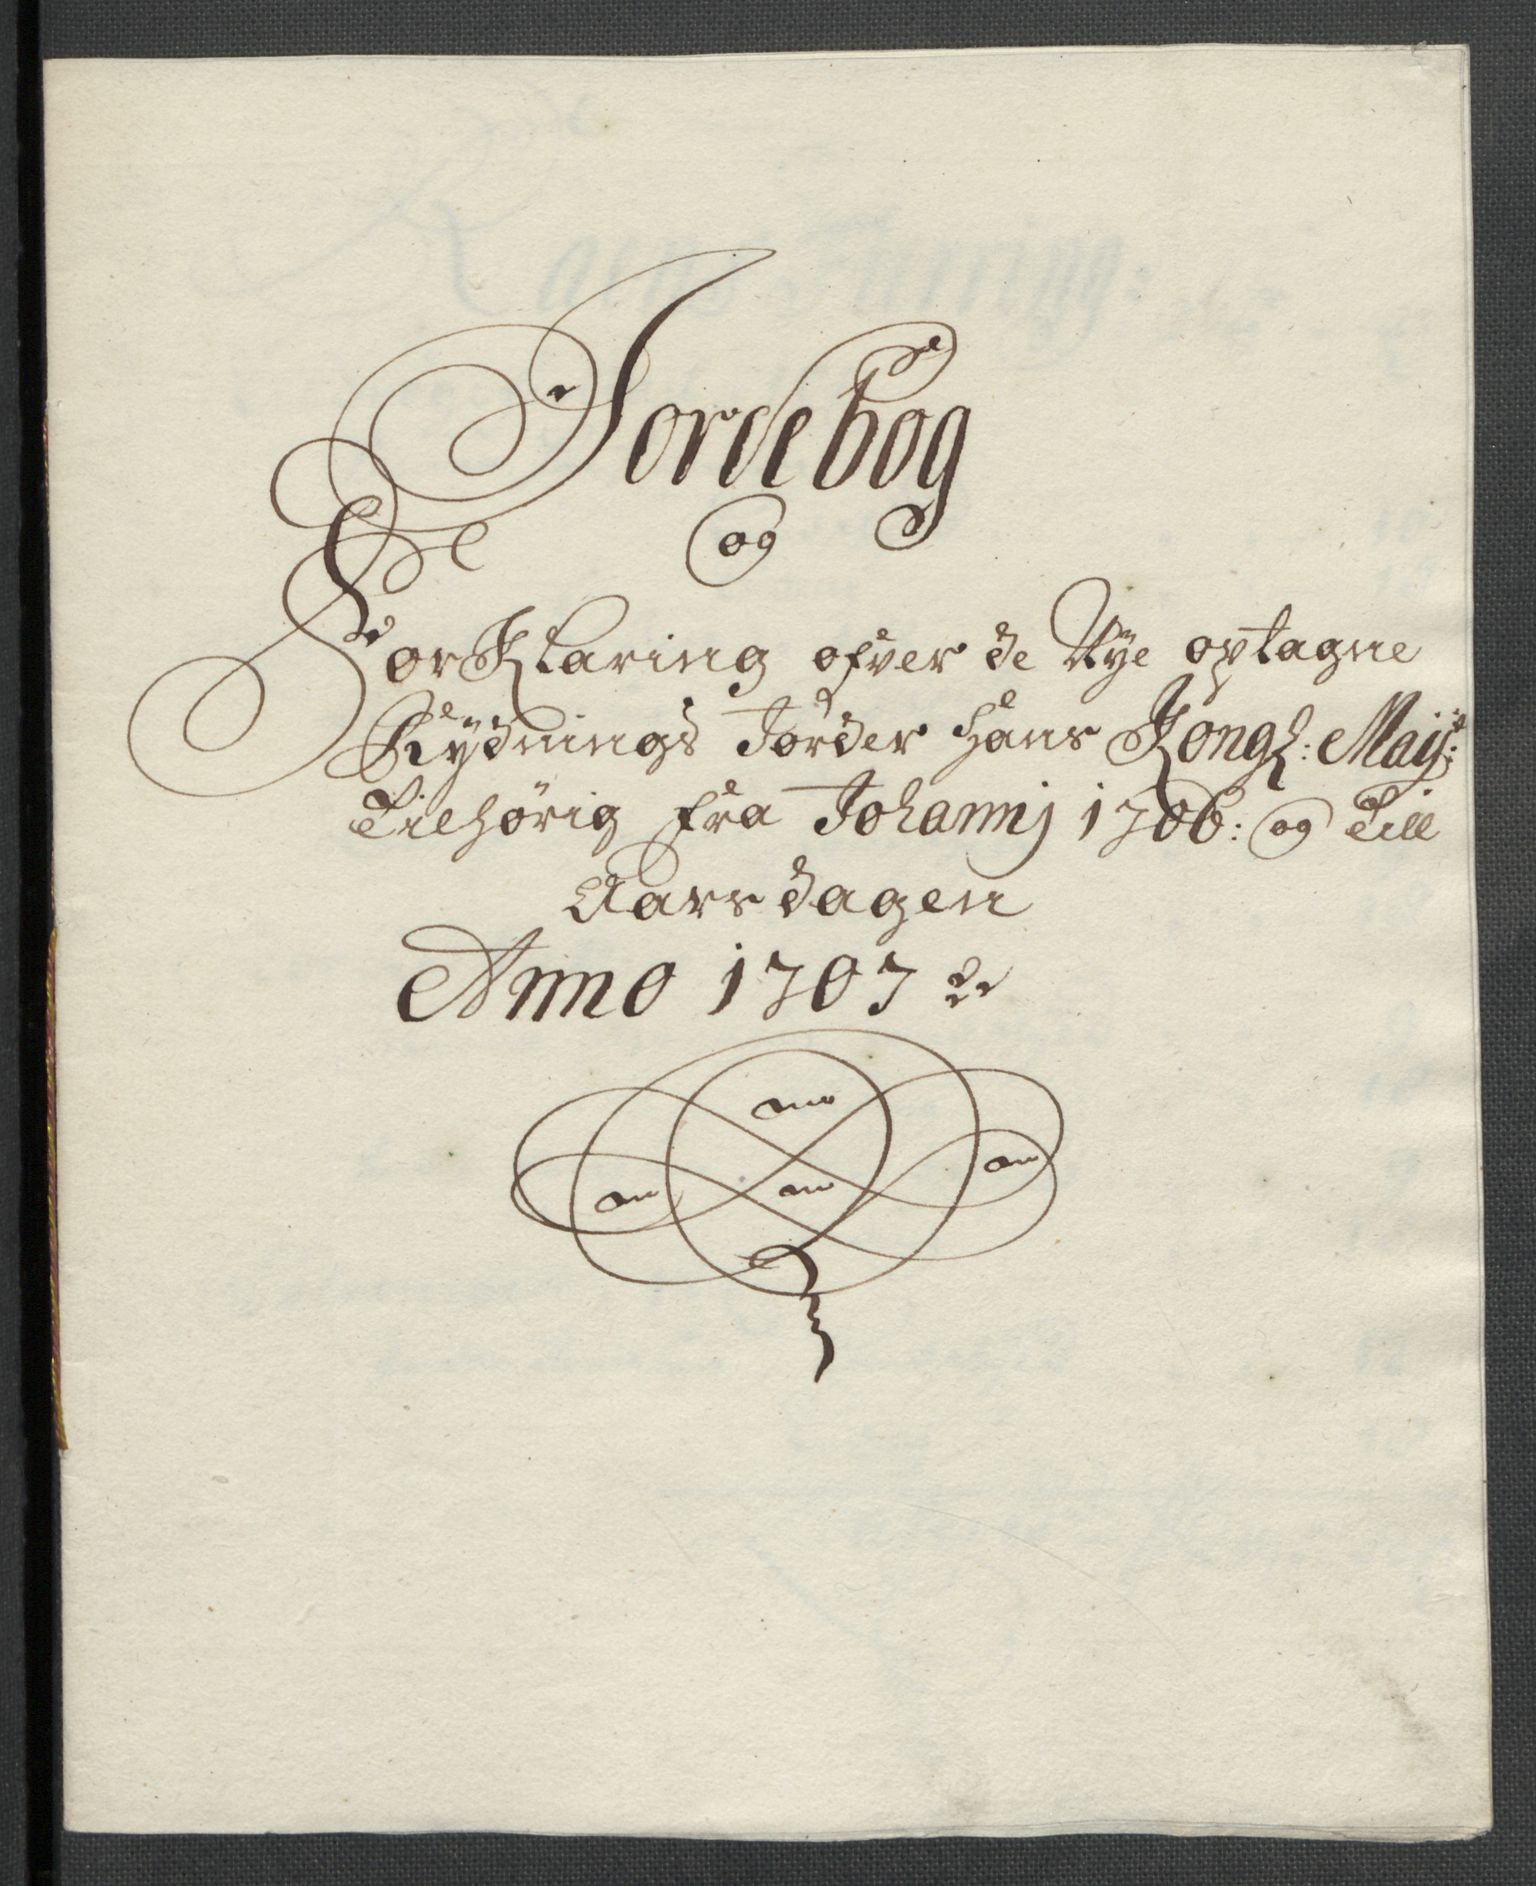 Jordebog
og
ForKlaring ofver de Nye optagne
Rydnings Jorder Hans Kongl: Maij:t
Tilhørig fra Johannj 1706: og Till
Aarsdagen
Anno 1707